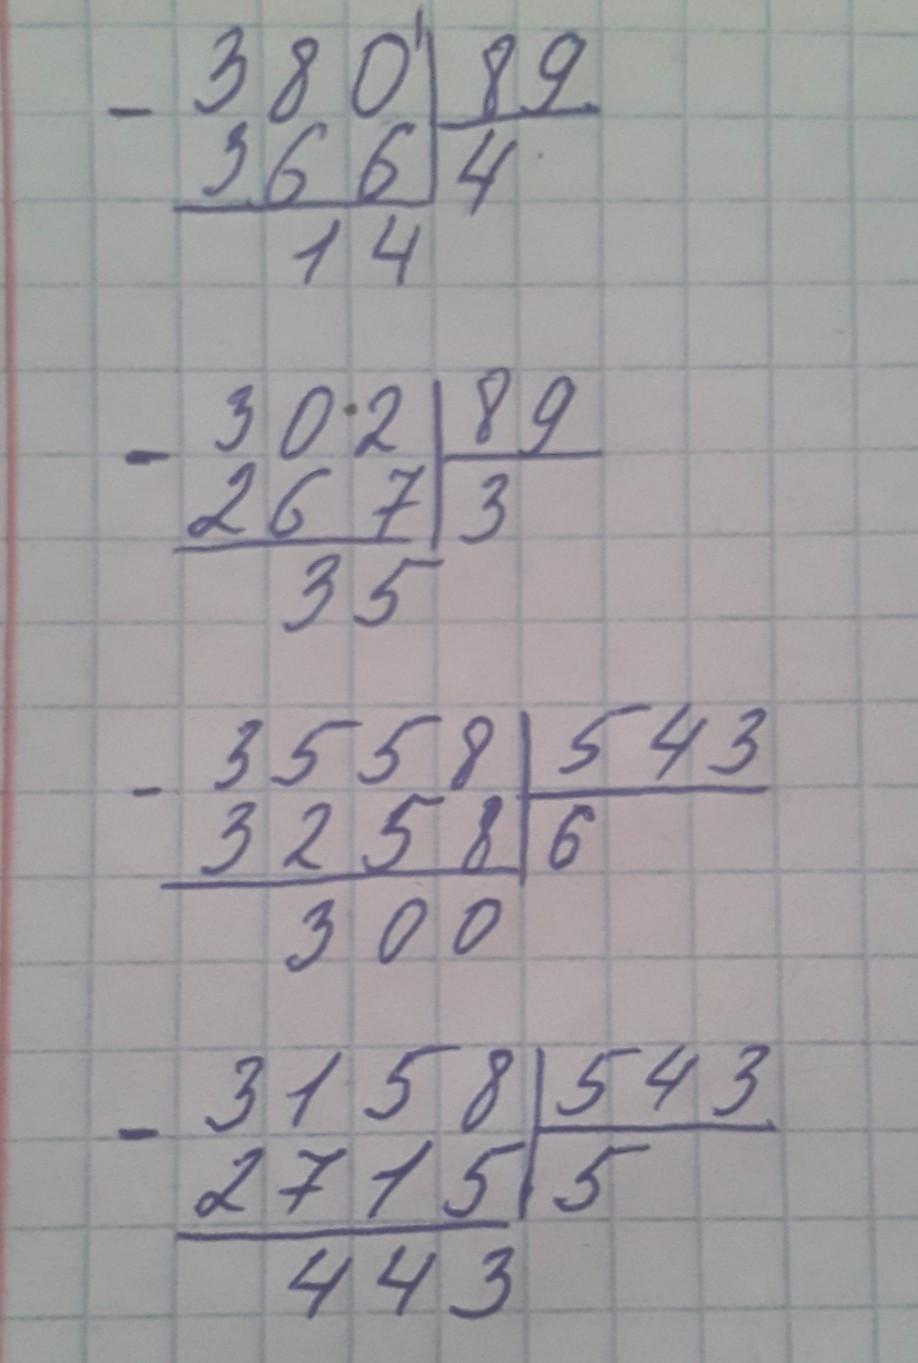 380 89
- 366 4
14
302 89
- 267 3
35
3558 543
- 3258 6
300
3158 543
- 2715 5
443